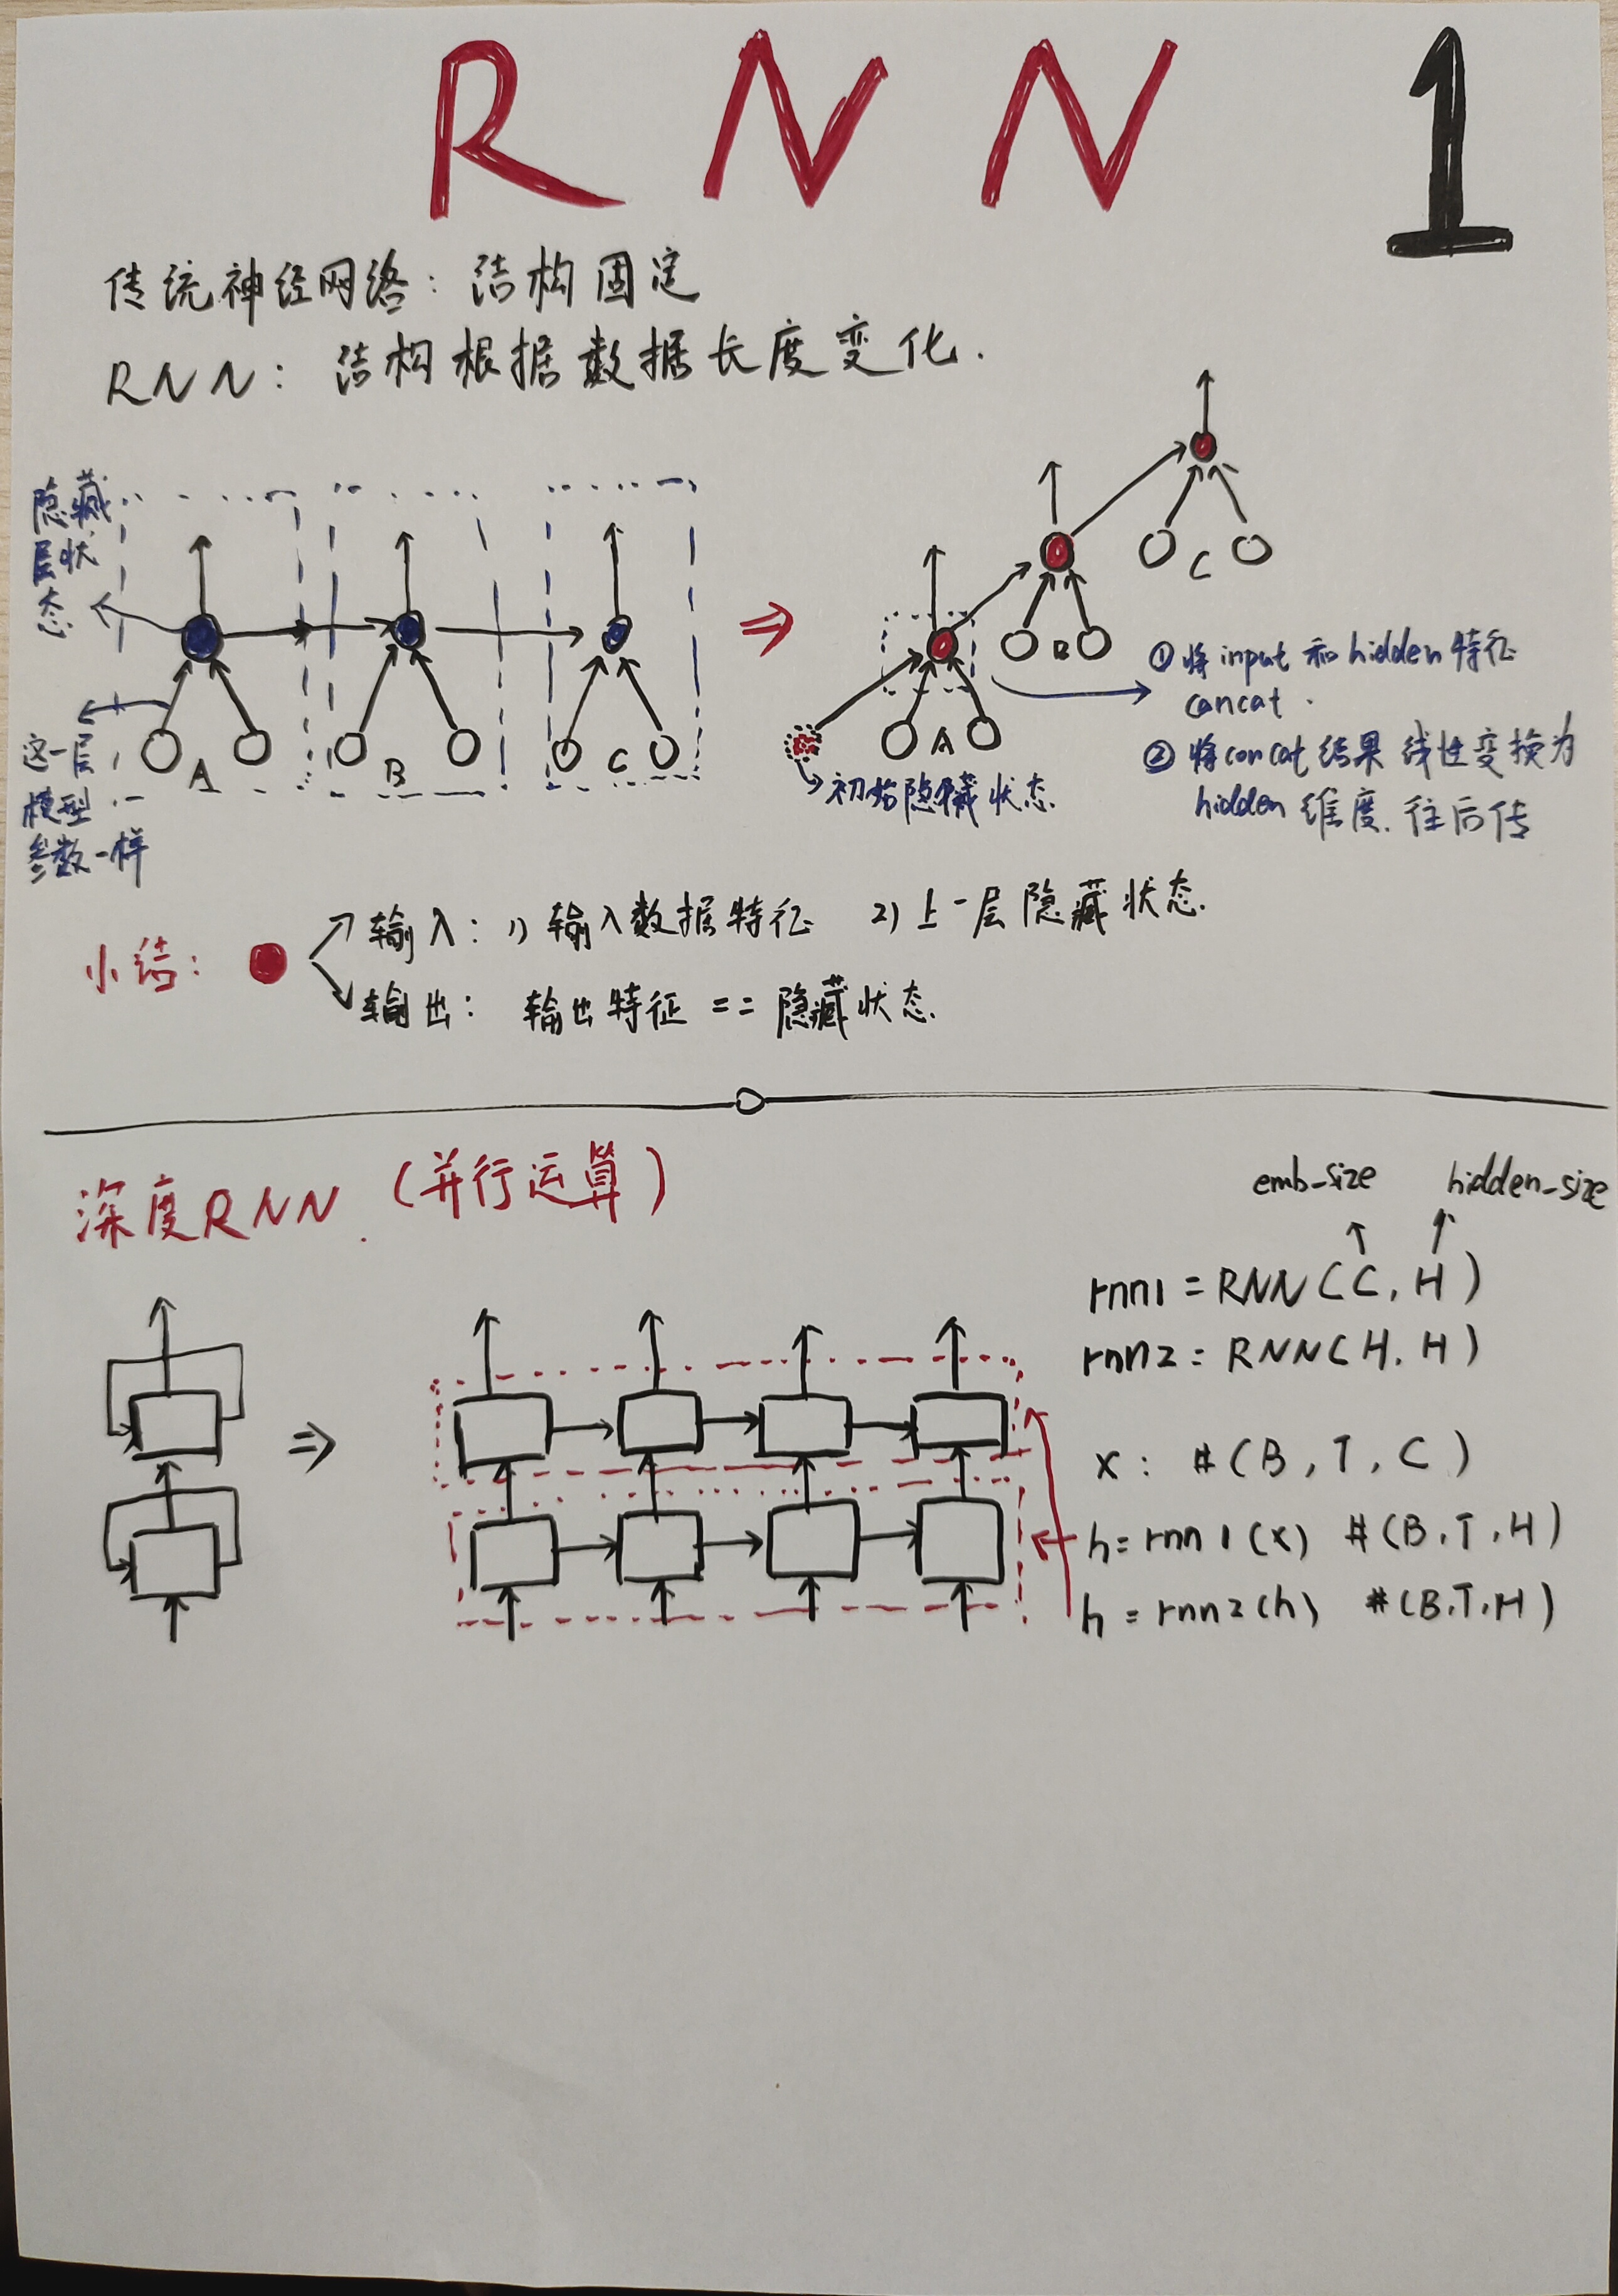 RNN 1
传统神经网络：结构固定
RNN：结构根据数据长度变化.
隐藏
层状
态
A
B
C
这一层
模型
参数一样
A
B
C
初始隐藏状态
① 将input和hidden特征
cancat.
② 将concat结果线性变换为
hidden维度.往后传
小结：
输入：1) 输入数据特征 2) 上一层隐藏状态.
输出：输出特征 == 隐藏状态.
深度RNN.（并行运算）
emb_size hidden_size
rnn1 = RNN(C, H)
rnn2 = RNN(H, H)
x: #(B, T, C)
h = rnn1(x) #(B, T, H)
h = rnn2(h) #(B, T, H)